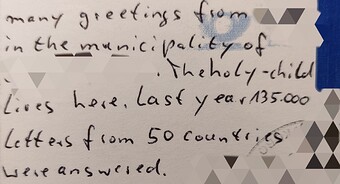 many greetings from
in the municipality of
. The holy-child
lives here. Last year 135.000
letters from 50 countries
were answered.